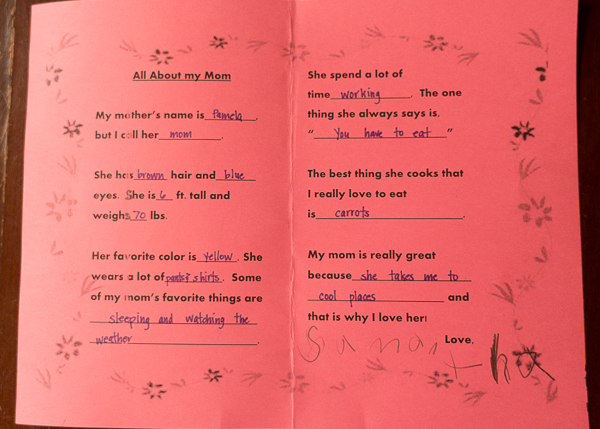 All About my Mom
My mother's name is Pamela,
but I call her mom.
She has brown hair and blue
eyes. She is 6 ft. tall and
weighs 70 lbs.
Her favorite color is yellow. She
wears a lot of pants & shirts. Some
of my mom's favorite things are
sleeping and watching the
weather.
She spend a lot of
time working. The one
thing she always says is,
"You have to eat"
The best thing she cooks that
I really love to eat
is carrots.
My mom is really great
because she takes me to
cool places and
that is why I love her!
Love,
Samantha